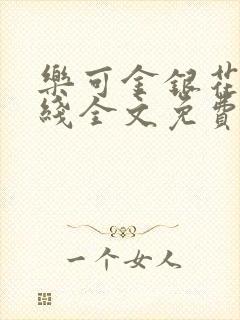 樂可金銀花
綫全文免費
一个女人